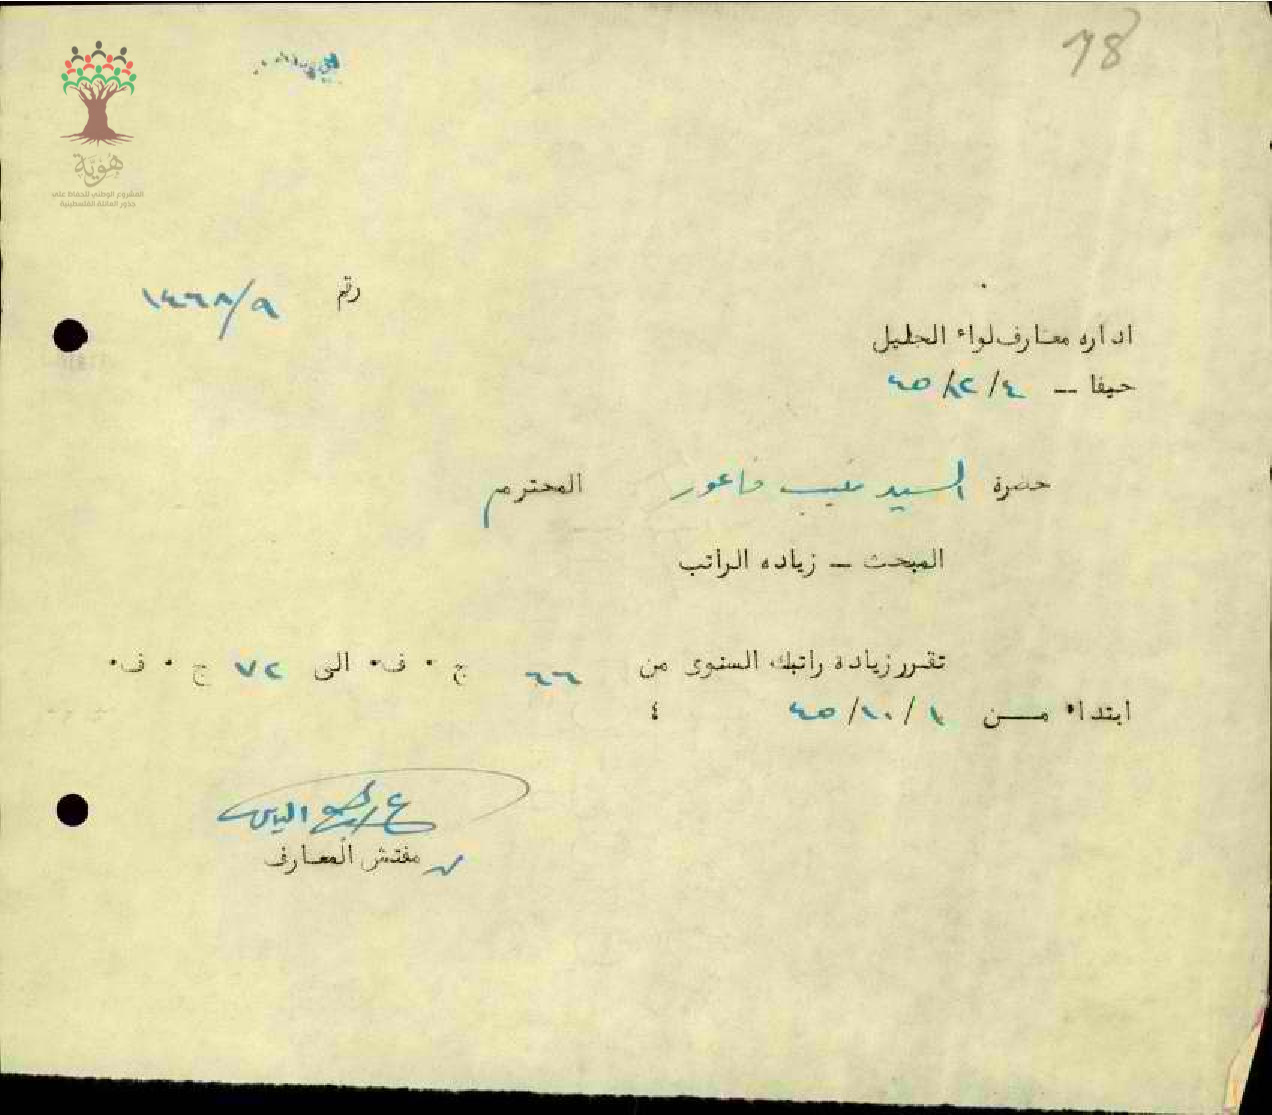 78
هوية
المشروع الوطني للحفاظ على
جذور العائلة الفلسطينية
رقم ١٤٦٨/٩
اداره معارف لواء الجليل
حيفا — ٤/١٢/٤٥
حضرة السيد فاعور المحترم
المبحث — زياده الراتب
تقرر زياده راتبك السنوى من ٦٦ ج ٠ ف٠ الى ٧٢ ج ٠ ف٠
ابتداء من ١/١٠/٤٥ ؛
الياس
مفتش المعارف